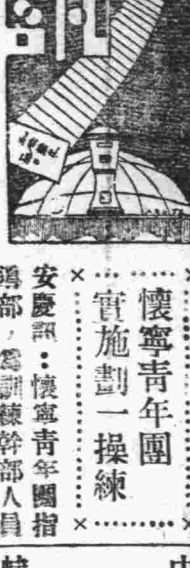 懷寧青年團
實施劃一操練
安慶訊：懷寧青年團指
導部，為訓練幹部人員